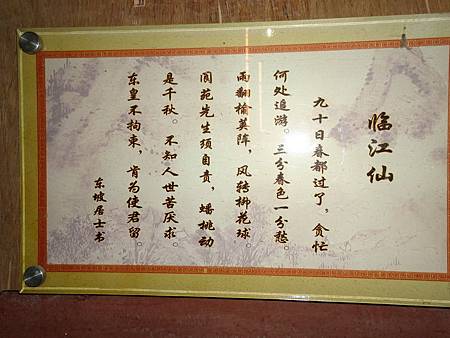 临江仙
九十日春都过了，贪忙
何处追游。三分春色一分愁。
雨翻榆荚阵，风转柳花球。
阆苑先生须自责，蟠桃动
是千秋。不知人世苦厌求。
东皇不拘束，肯为使君留。
东坡居士书